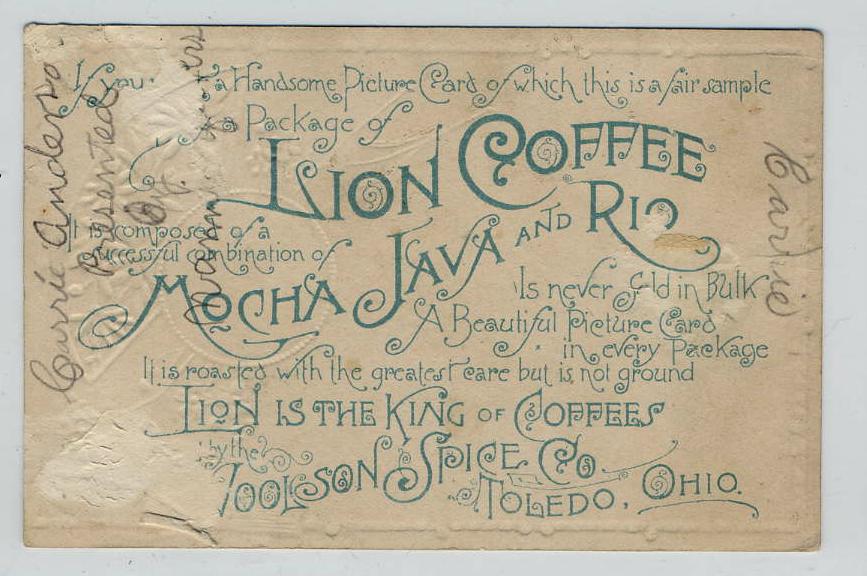 If you a Handsome Picture Card of which this is a fair sample
a Package of
LION COFFEE
It is composed of a
successful combination of
MOCHA JAVA AND RIO
Is never Sold in Bulk
A Beautiful Picture Card
in every Package
It is roasted with the greatest care but is not ground
LION IS THE KING OF COFFEES
by the
WOOLSON SPICE CO.
TOLEDO, OHIO.
Currie Anderso
Presented
By
Carrie